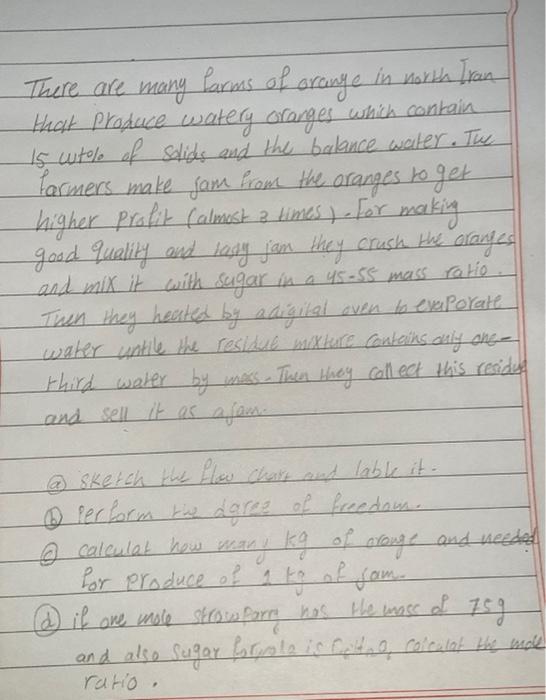 There are many farms of orange in north Iran
that produce watery oranges which contain
15 wt% of solids and the balance water. The
farmers make jam from the oranges to get
higher profit (almost 3 times). For making
good quality and tasty jam they crush the oranges
and mix it with sugar in a 45-55 mass ratio.
Then they heated by a digital oven to evaporate
water untile the residue mixture contains only one-
third water by mass. Then they collect this residue
and sell it as a jam.
(a) sketch the flow chart and lable it.
(b) Perform the dgree of freedom.
(c) calculat how many kg of orange and needed
for produce of 1 kg of jam.
(d) if one mole has the mass of 75g
and also sugar formola is calculat the mole
ratio.